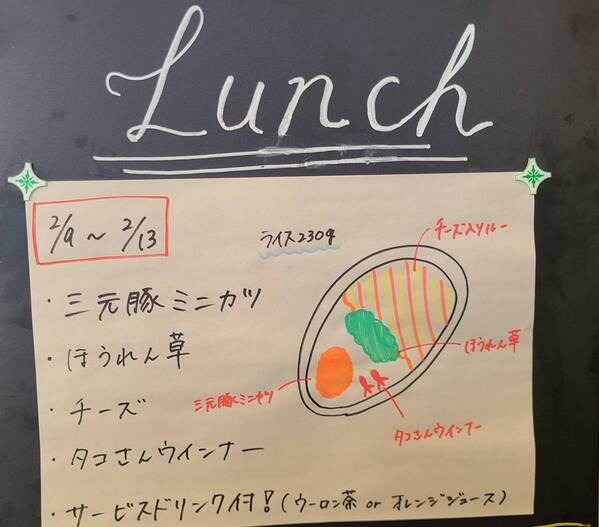 Lunch
2/9 ~ 2/13
ライス230g
チーズ入りルー
・三元豚ミニカツ
・ほうれん草
ほうれん草
・チーズ
三元豚ミニカツ
タコさんウインナー
・タコさんウインナー
・サービスドリンク付！(ウーロン茶 or オレンジジュース)